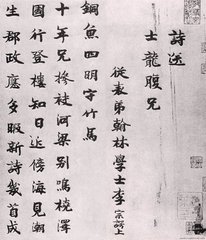 詩送
士龍腹兄
從表弟翰林學士李宗諤上
銅魚四明守竹馬
十年兄摻袪河梁別鳴橈澤
國行登樓知日近傍海見潮
生郡政應多暇新詩幾首成